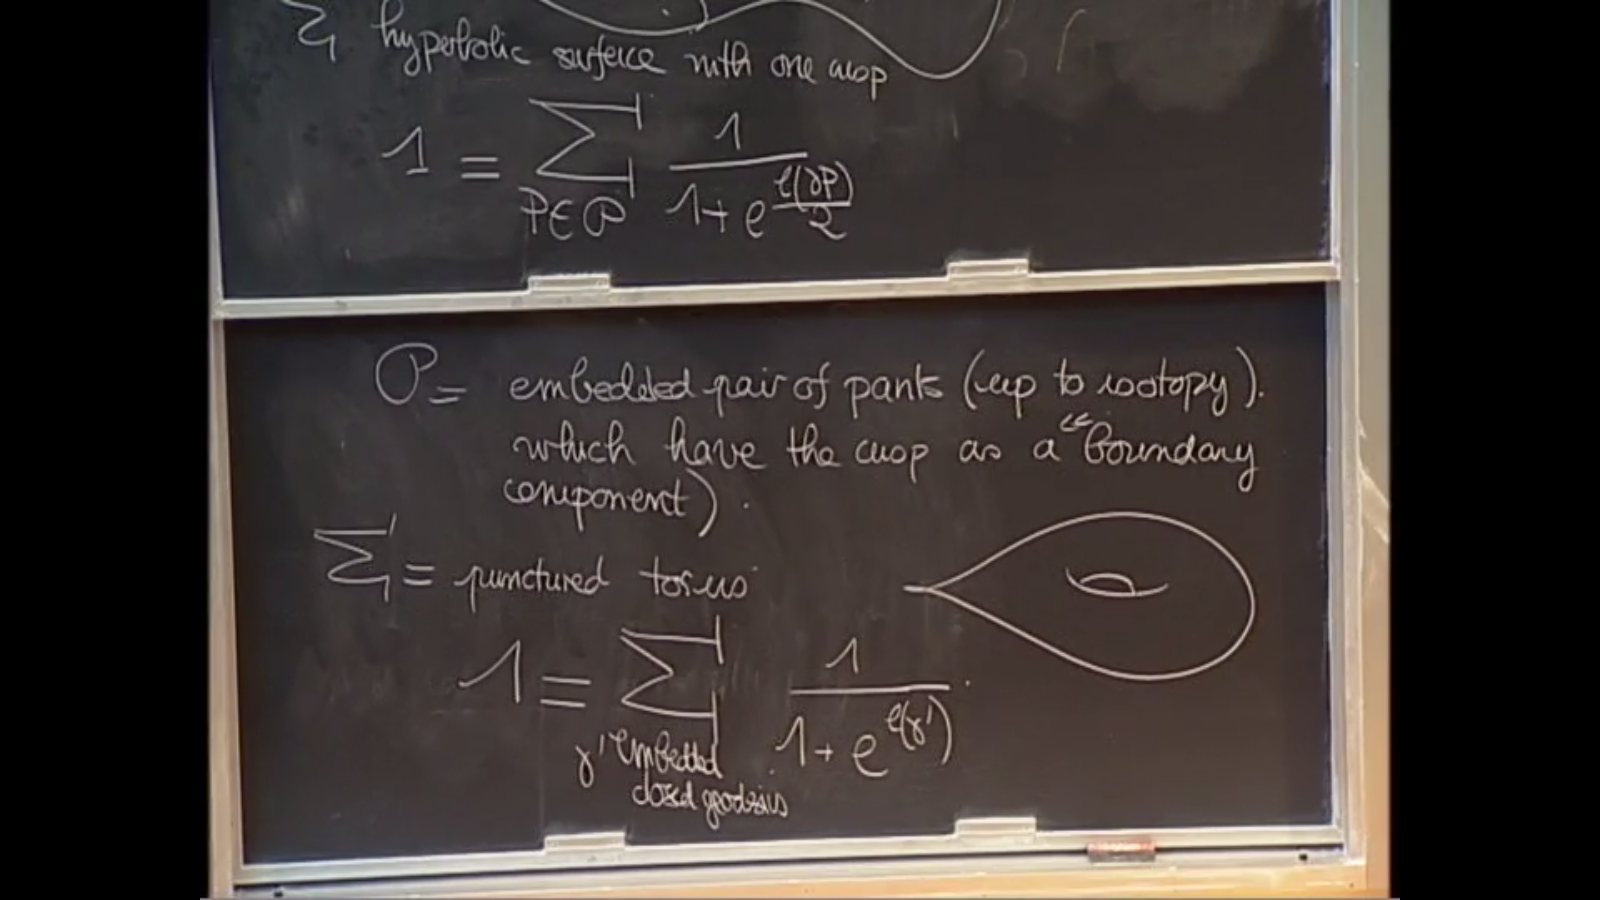 Σ hyperbolic surface with one cusp
1 = Σ_{P∈𝒫} 1/(1+e^{ℓ(∂P)/2})
𝒫 = embedded pair of pants (up to isotopy).
which have the cusp as a "boundary
component).
Σ = punctured torus
1 = Σ_{γ' embedded closed geodesics} 1/(1+e^{ℓ(γ')}).